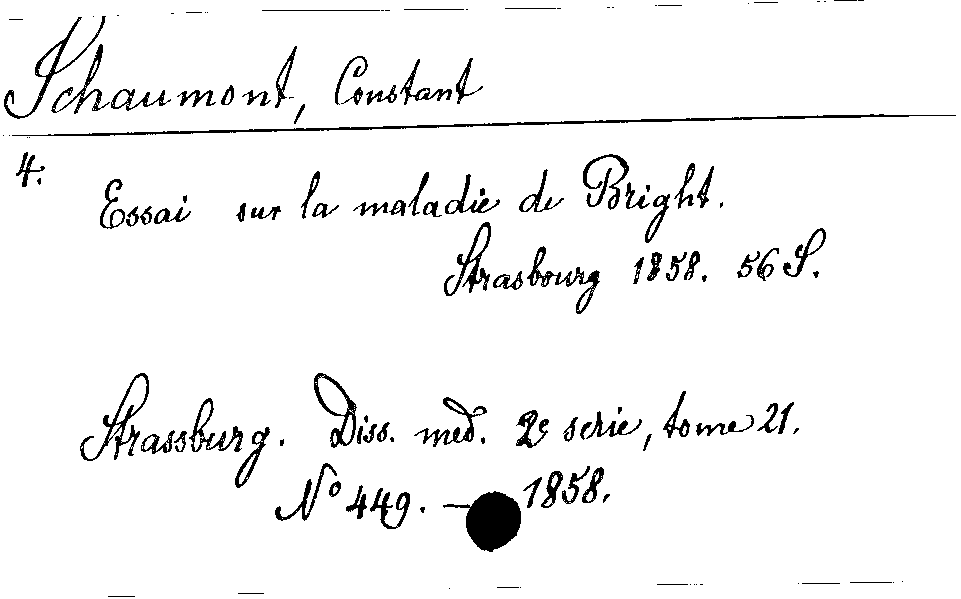 Schaumont, Constant
4.
Essai sur la maladie de Bright.
Strasbourg 1858. 56 S.
Strassburg. Diss. med. 2e serie, tome 21.
No 449. — 1858.